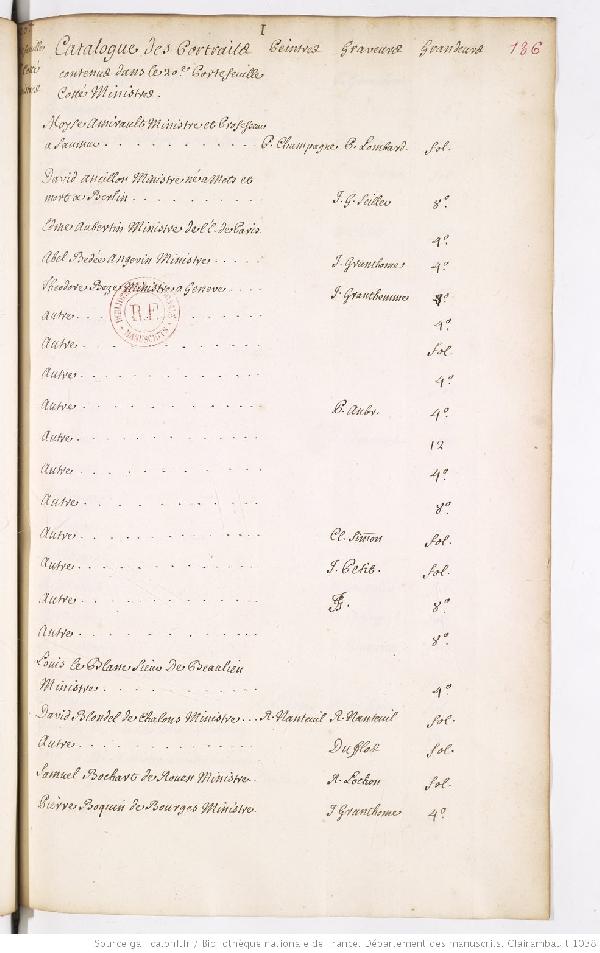 I
Catalogue des Portraits Peintres Graveurs Grandeurs 186
contenus dans le 20.e Portefeuille
Cotté Ministres.
Moyse Amirault Ministre et Professeur
a Saumur . . . . . . . . . . P. Champagne P. Lombard. fol.
David Ancillon Ministre né a Mets et
mort a Berlin . . . . . . . . . . J. G. Seiller 8º.
Edme Aubertin Ministre de l'E. de Paris.
4º.
Abel Bedée Angevin Ministre . . . . J. Granthome 4º.
Theodore Beze Ministre a Geneve . . . J. Granthomme 8º.
BIBLIOTHEQUE
R.F.
MANUSCRITS
Autre . . . . . . . . . . . 4º.
Autre . . . . . . . . . . . fol.
Autre . . . . . . . . . . . 4º.
Autre . . . . . . . . . . . P. Aubr. 4º.
Autre . . . . . . . . . . . 12
Autre . . . . . . . . . . . 4º.
Autre . . . . . . . . . . . 8º.
Autre . . . . . . . . . . . Cl. Simon fol.
Autre . . . . . . . . . . . J. Petit. fol.
Autre . . . . . . . . . . . 8º.
Autre . . . . . . . . . . . 8º.
Louis le Blanc Sieur De Beaulieu
Ministre . . . . . . . . . . 4º.
David Blondel de Chalons Ministre . . . R. Nanteuil R. Nanteuil fol.
Autre . . . . . . . . . . . Duflot fol.
Samuel Bochart de Rouen Ministre . R. Lochon fol.
Pierre Boquin de Bourges Ministre J Granthome 4º.
Source gallica.bnf.fr / Bibliothèque nationale de France. Département des manuscrits. Clairambault 1038